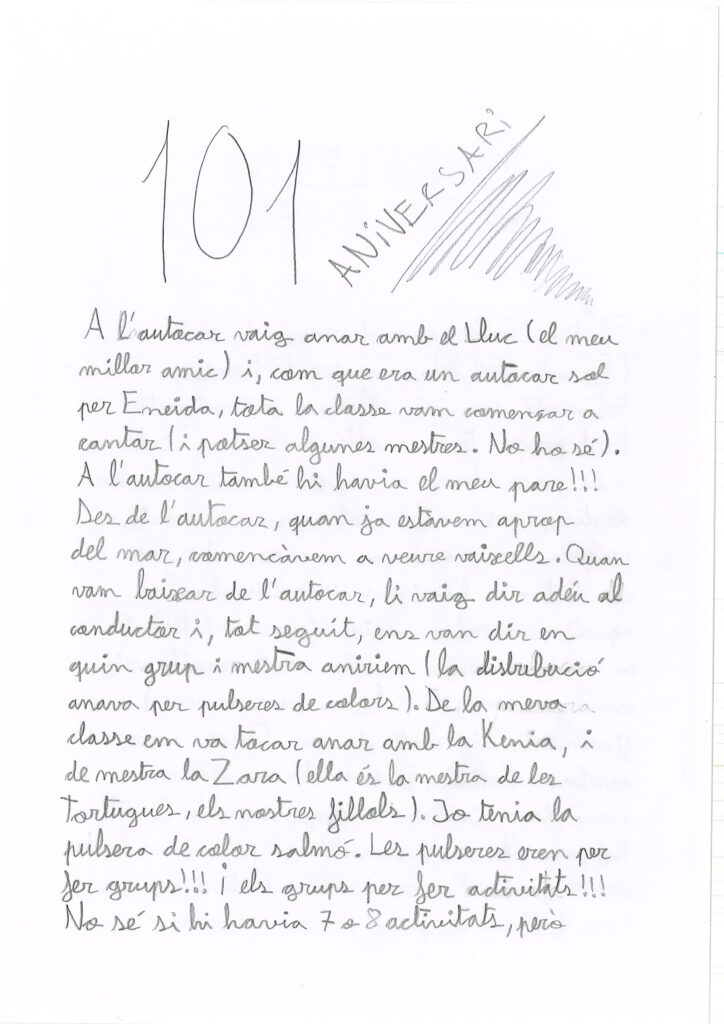 101 ANIVERSARI
A l'autocar vaig anar amb el Lluc (el meu
millor amic) i, com que era un autocar sol
per Eneida, tota la classe vam començar a
cantar (i potser algunes mestres. No ho sé).
A l'autocar també hi havia el meu pare!!!
Des de l'autocar, quan ja estàvem aprop
del mar, comencàvem a veure vaixells. Quan
vam baixar de l'autocar, li vaig dir adéu al
conductor i, tot seguit, ens van dir en
quin grup i mestra aniriem (la distribució
anava per pulseres de colors). De la meva
classe em va tocar anar amb la Kenia, i
de mestra la Zara (ella és la mestra de les
Tortugues, els nostres fillols). Jo tenia la
pulsera de color salmó. Les pulseres eren per
fer grups!!! i els grups per fer activitats!!!
No sé si hi havia 7 o 8 activitats, però